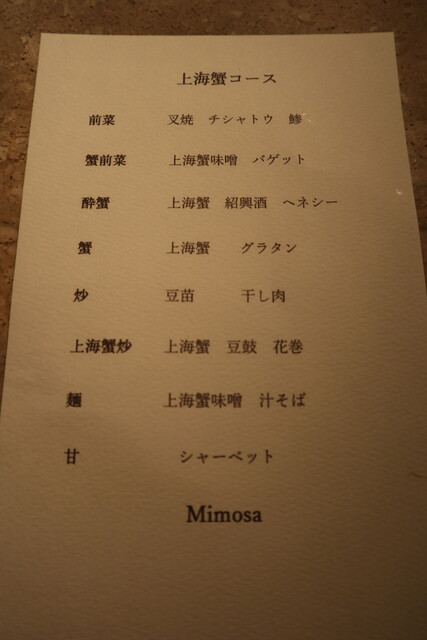 上海蟹コース
前菜 叉焼 チシャトウ 鯵
蟹前菜 上海蟹味噌 バゲット
酔蟹 上海蟹 紹興酒 ヘネシー
蟹 上海蟹 グラタン
炒 豆苗 干し肉
上海蟹炒 上海蟹 豆鼓 花巻
麺 上海蟹味噌 汁そば
甘 シャーベット
Mimosa